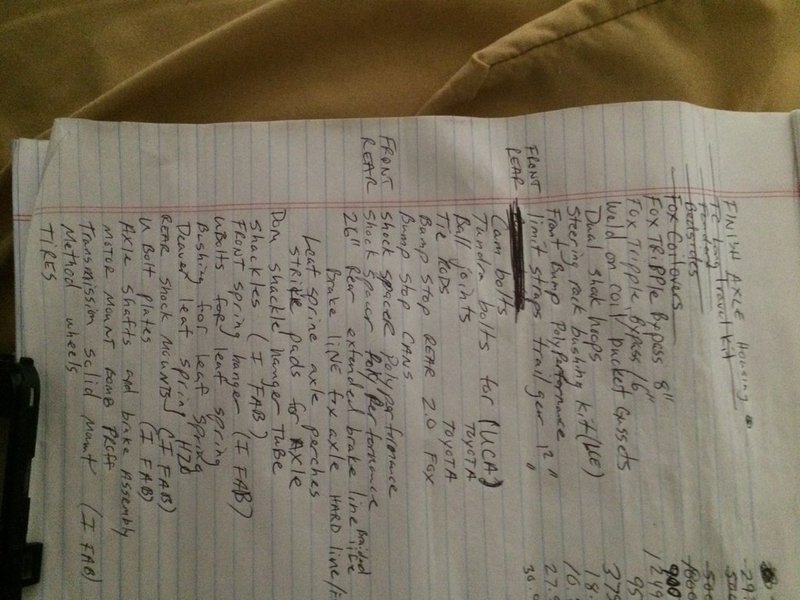 FINISH AXLE Housing
TC Long Travel Kit
Fenders
Bedsides
Fox Coilovers
Fox TRIPPLE Bypass 8"
Fox TRIPPLE Bypass 6"
Weld on coil bucket Gussets
Dual shok hoops
Steering rack bushing Kit (LCE)
Front Bump Polyperformance "
FRONT limit straps trail gear 12 "
REAR
Cam bolts
Tundra bolts for (UCA)
Ball joints TOYOTA
Tie Rods TOYOTA
Bump Stop REAR 2.0 FOX
Bump Stop CANS
FRONT Shock spacer Polyperformance
REAR Shock Spacer Polyperformance
26" Rear extended brake line braided
Brake line for axle HARD line
Leaf spring axle perches
strike pads for AXLE
Dom shackle hanger TUBE
shackles (I FAB)
FRONT spring hanger (I FAB)
UBolts for leaf spring
Bushing for leaf spring
Deaver leaf spring
REAR shock MOUNTS (I FAB)
U Bolt plates (I FAB)
Axle shafts and brake Assembly
MOTOR MOUNT BOMB PROOF
Transmission solid mount (I FAB)
Method wheels
TIRES